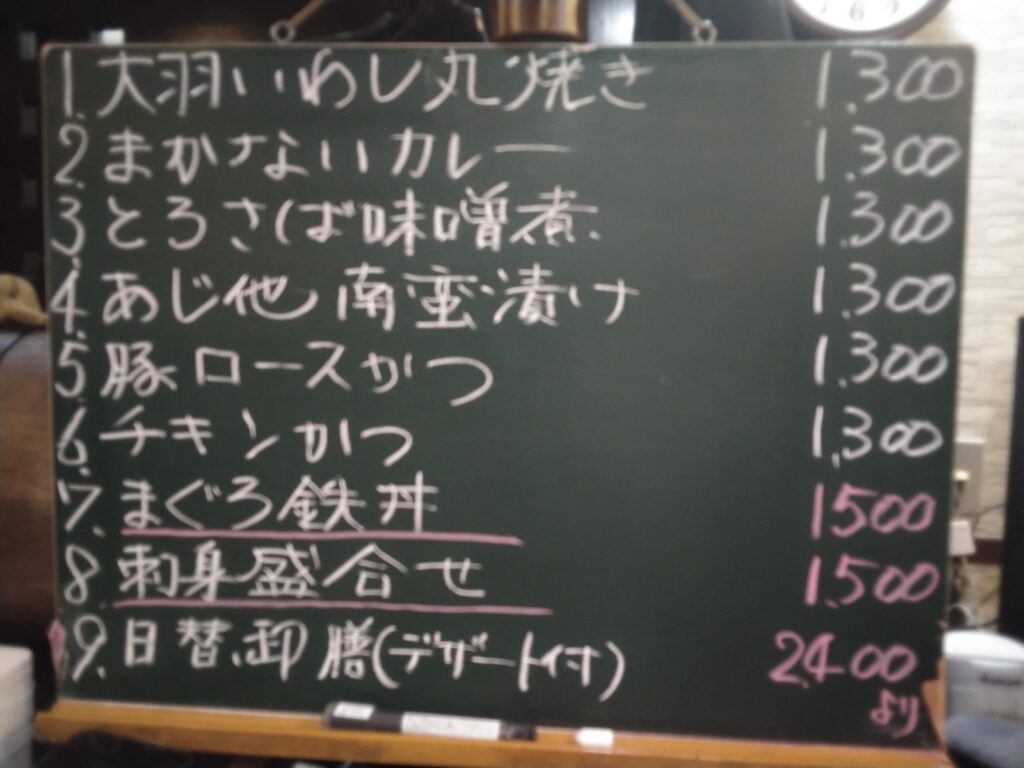 1. 大羽いわし丸焼き 1,300
2. まかないカレー 1,300
3. とろさば味噌煮 1,300
4. あじ他 南蛮漬け 1,300
5. 豚ロースかつ 1,300
6. チキンかつ 1,300
7. まぐろ鉄丼 1500
8. 刺身盛合せ 1,500
9. 日替、御膳(デザート付) 2,400
より